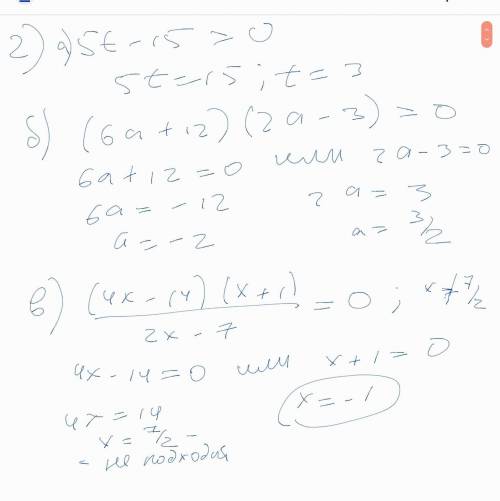 2) а) 5t - 15 = 0
5t = 15 ; t = 3
б) (6a + 12)(2a - 3) = 0
6a + 12 = 0 или 2a - 3 = 0
6a = -12 2a = 3
a = -2 a = 3/2
в) (4x - 14)(x + 1) / 2x - 7 = 0 ; x ≠ 7/2
4x - 14 = 0 или x + 1 = 0
4x = 14 x = -1
x = 7/2 -
- не подходит